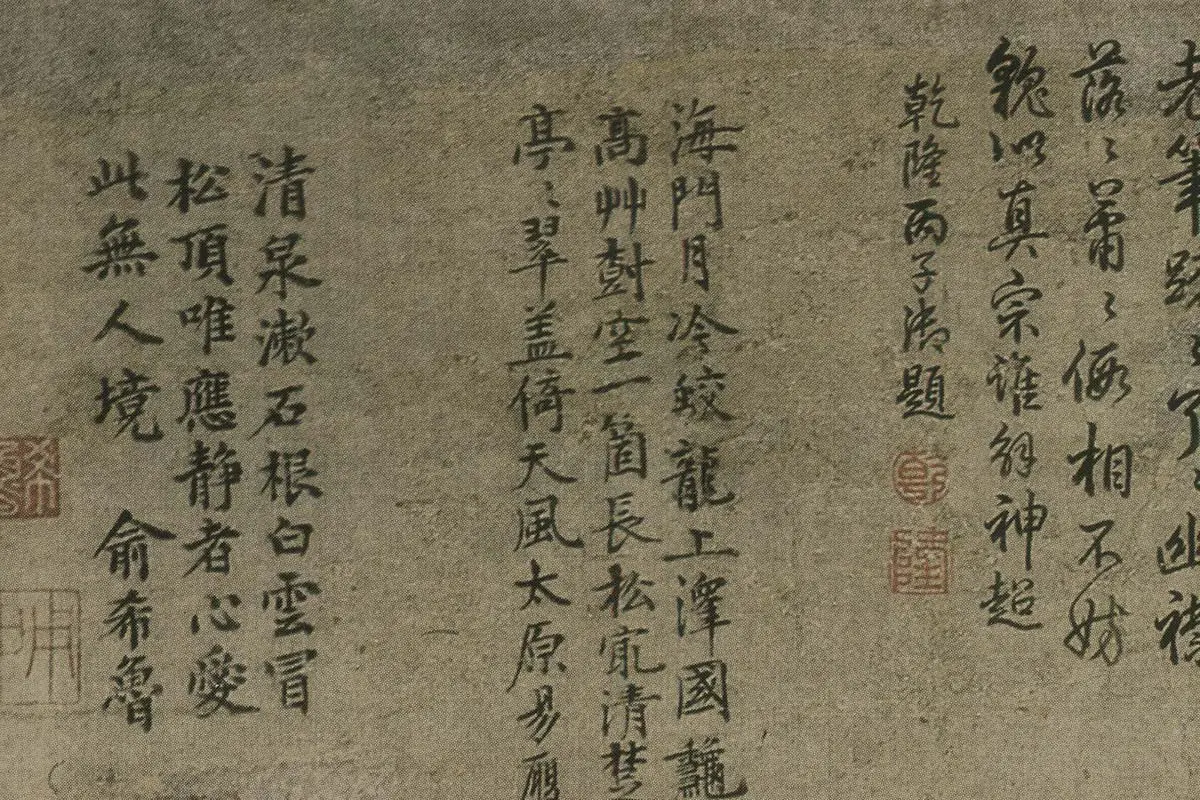 老筆
落〻蕭〻假相不妨
貌似真宗誰解神超
乾隆丙子御題
乾
隆
海門月冷蛟龍上澤國龝
高艸尌空一箇長松㝡清楚
亭〻翠盖倚天風太原易
清泉漱石根白雲冒
松頂唯應静者心愛
此無人境 俞希魯